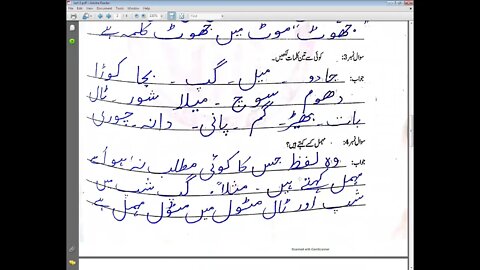 جھوٹ موٹ میں جھوٹ کلمہ ہے
سوال نمبر 3: کوئی سے تین کلمات لکھیں۔
جواب: جادو ۔ میل ۔ گپ ۔ بچا کوڑا
دھوم سوچ ۔ میلا شور ۔ ٹال
بات ۔ بھیڑ ۔ گم ۔ پانی ۔ دانہ ۔ چوری
سوال نمبر 4: مہمل کسے کہتے ہیں؟
جواب: وہ لفظ جس کا کوئی مطلب نہ ہو اُسے
مہمل کہتے ہیں ۔ مثلاً گپ شپ میں
شپ اور ٹال مٹول میں مٹول مہمل ہے